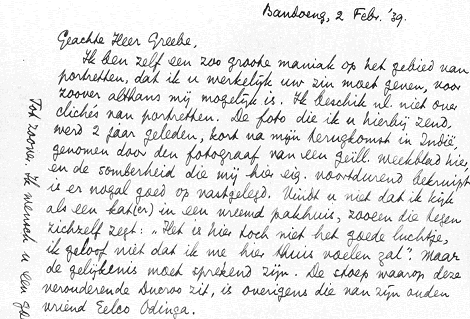 Bandoeng, 2 Febr. '39.
Geachte Heer Greebe,
Ik ben zelf een zoo groote maniak op het gebied van
portretten, dat ik u werkelijk uw zin moet geven, voor
zoover althans mij mogelijk is. Ik beschik nl. niet over
clichés van portretten. De foto die ik u hierbij zend,
werd 2 jaar geleden, kort na mijn terugkomst in Indië,
genomen door den fotograaf van een geïll. weekblad hier,
en de somberheid die mij hier eig. voortdurend bekruipt
is er nogal goed op vastgelegd. Vindt u niet dat ik kijk
als een kat(er) in een vreemd pakhuis, zooeen die tegen
zichzelf zegt: "Het is hier toch niet het goede luchtje,
ik geloof niet dat ik me hier thuis voelen zal". Maar
de gelijkenis moet sprekend zijn. De stoep waarop deze
verouderende Ducroo zit, is overigens die van zijn ouden
vriend Eelco Odinga.
Tot zoover. Ik wensch u een